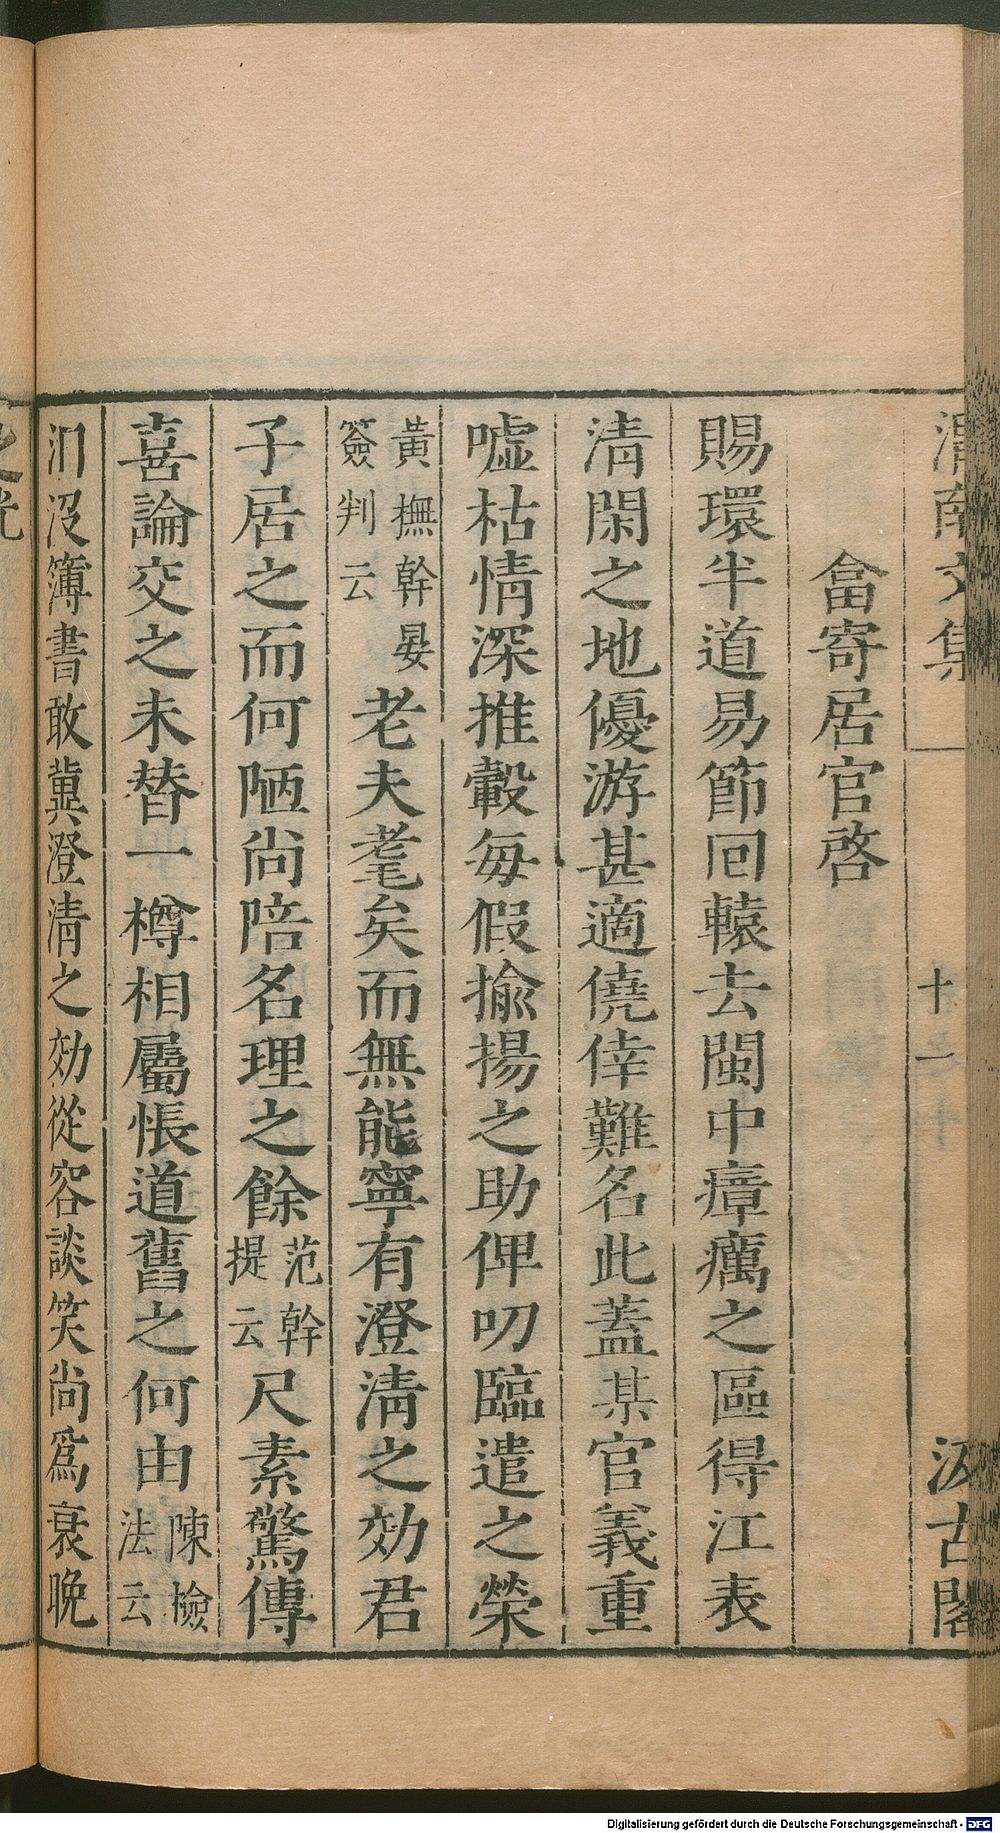 渭南文集
十一
汲古閣
畣寄居官啓
賜環半道易節回轅去閩中瘴癘之區得江表
清閑之地優游甚適僥倖難名此蓋某官義重
噓枯情深推轂每假揄揚之助俾叨臨遣之榮
黃撫幹晏
簽判云
老夫耄矣而無能寧有澄淸之効君
子居之而何陋尙陪名理之餘
范幹
提云
尺素驚傳
喜論交之未替一樽相屬悵道舊之何由
陳檢
法云
汨沒簿書敢兾澄淸之効從容談笑尙爲衰晚
之光
Digitalisierung gefördert durch die Deutsche Forschungsgemeinschaft - DFG